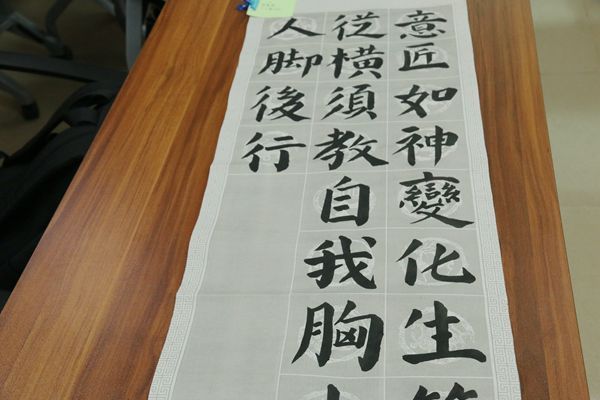 意匠如神變化生
從橫須教自我胸
人脚後行